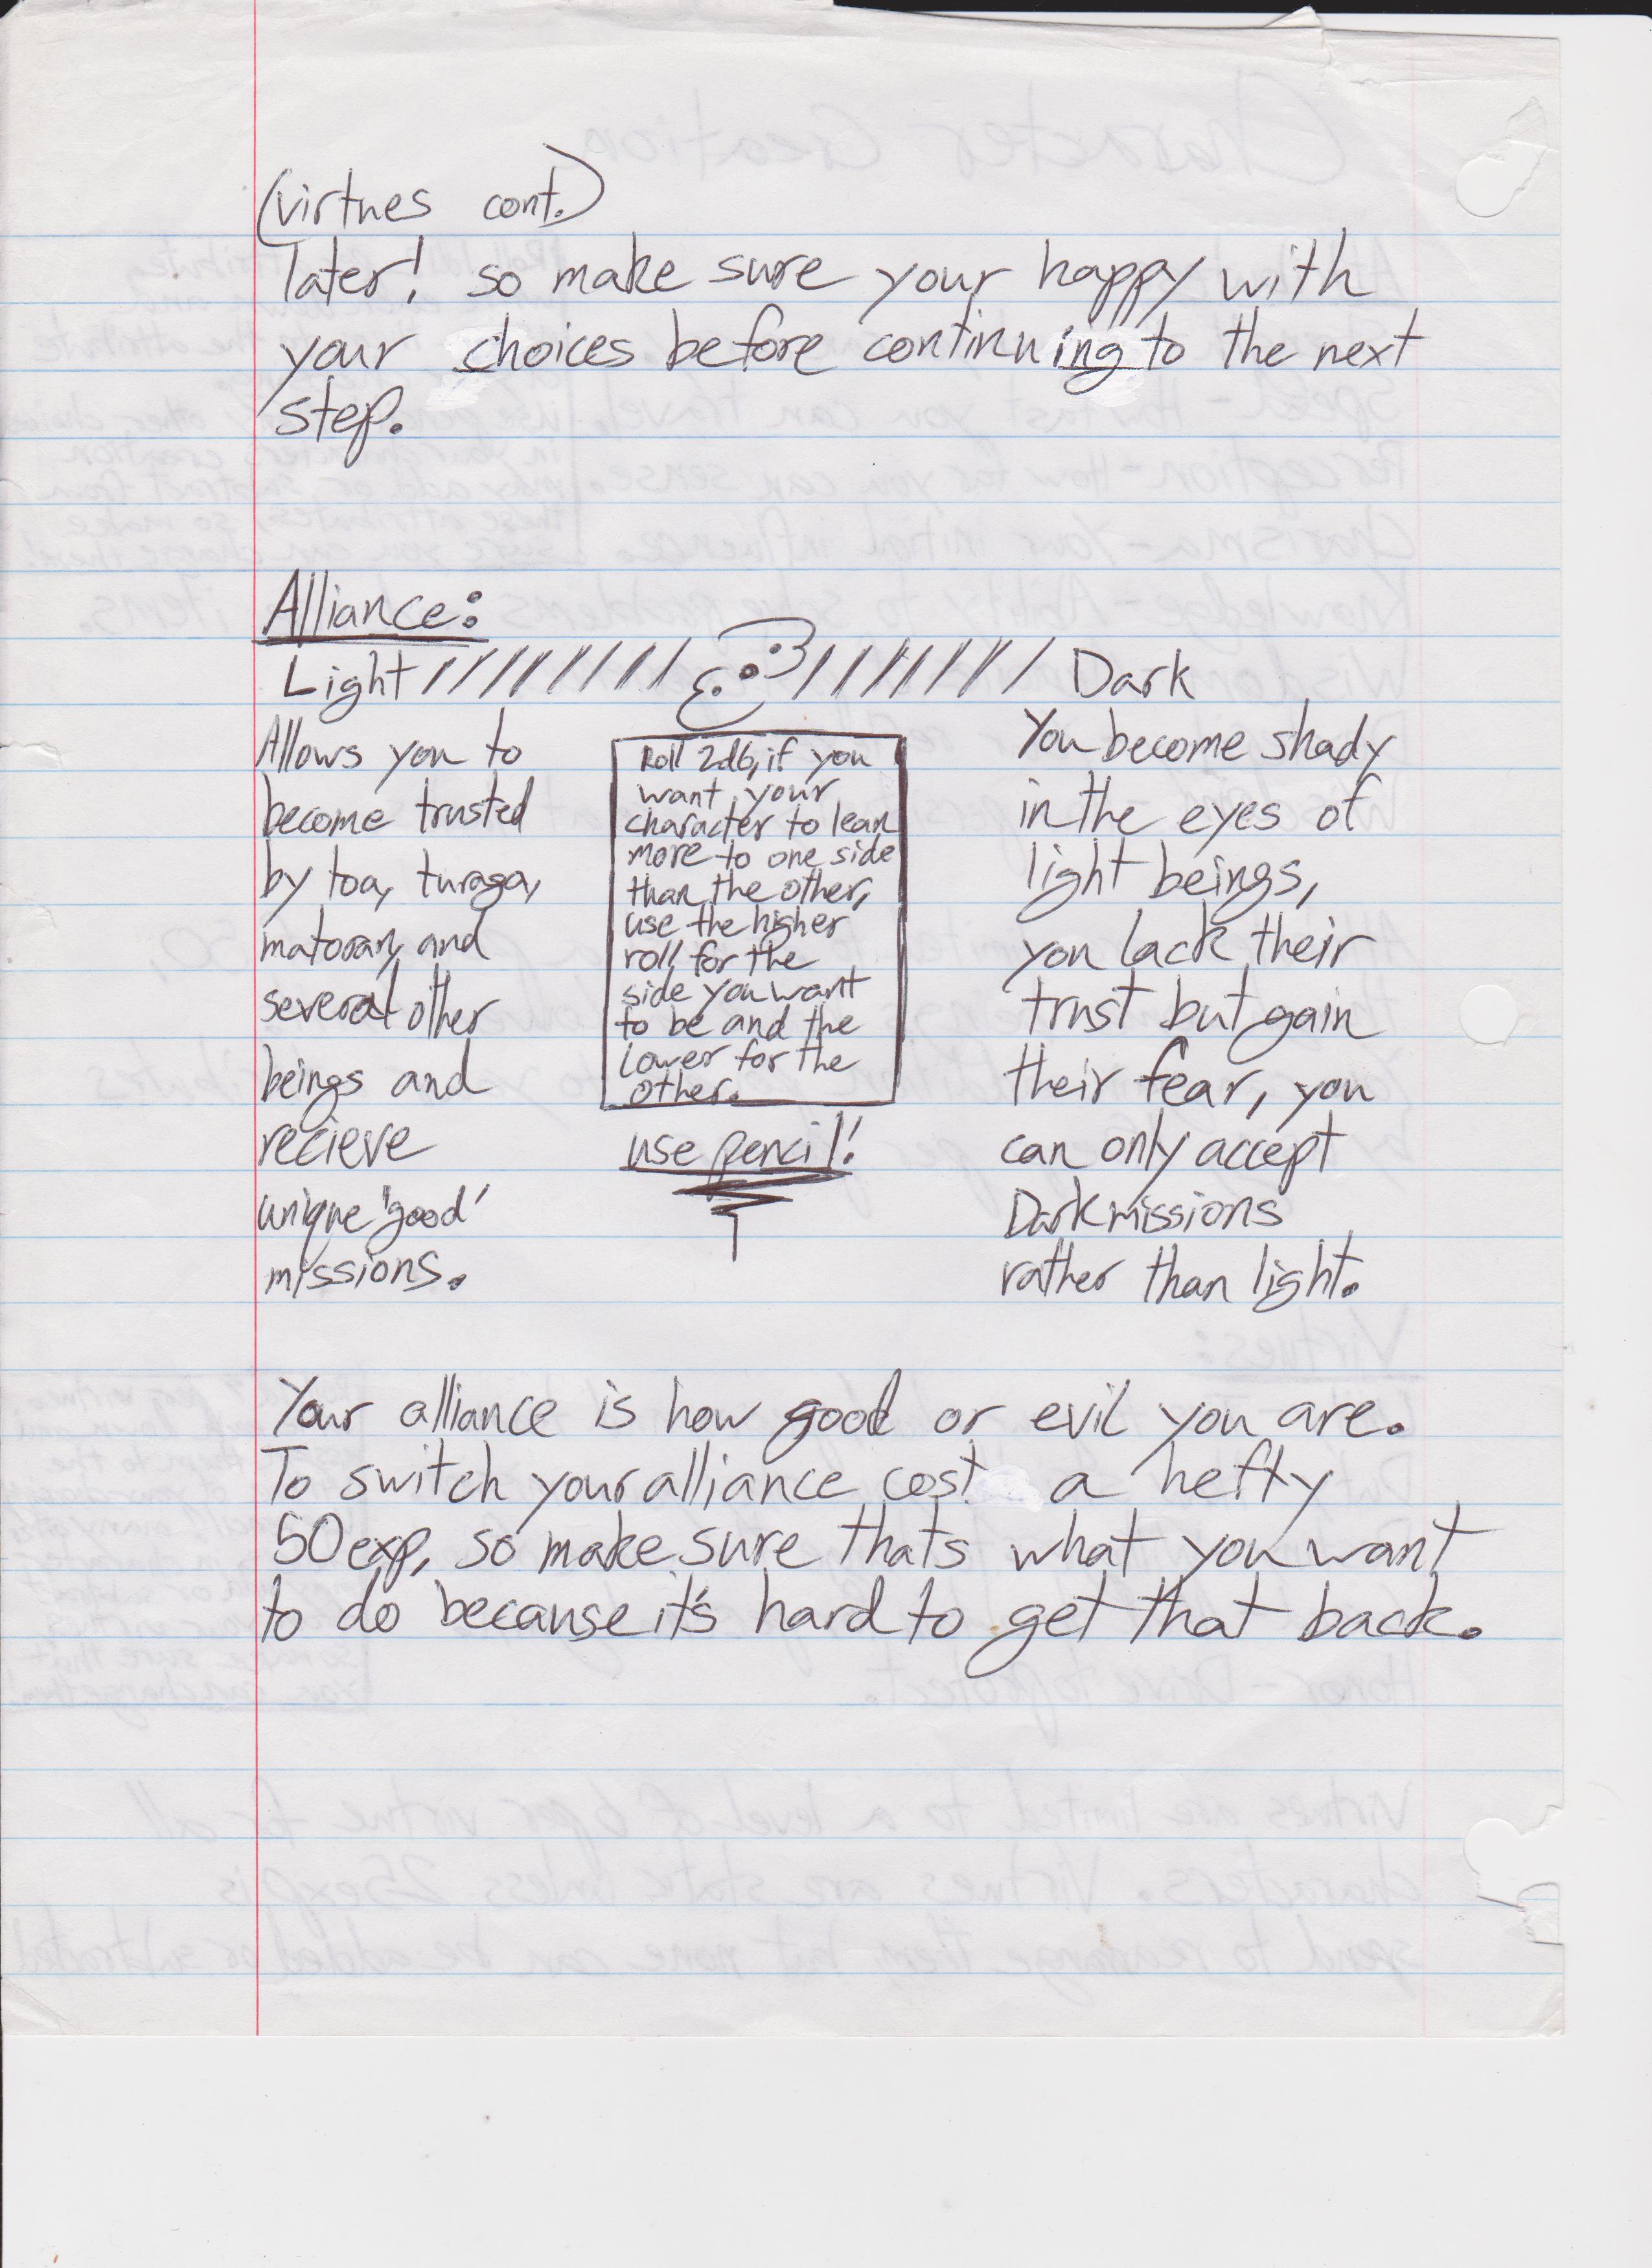 (virtues cont.)
later! so make sure your happy with
your choices before continuing to the next
step.
Alliance:
Light Dark
Allows you to
become trusted
by toa, turaga,
matoran, and
several other
beings and
recieve
unique 'good'
missions.
Roll 2d6, if you
want your
character to lean
more to one side
than the other,
use the higher
roll for the
side you want
to be and the
lower for the
other.
use pencil!
You become shady
in the eyes of
light beings,
you lack their
trust but gain
their fear, you
can only accept
Dark missions
rather than light.
Your alliance is how good or evil you are.
To switch your alliance cost a hefty
50exp, so make sure thats what you want
to do because it's hard to get that back.